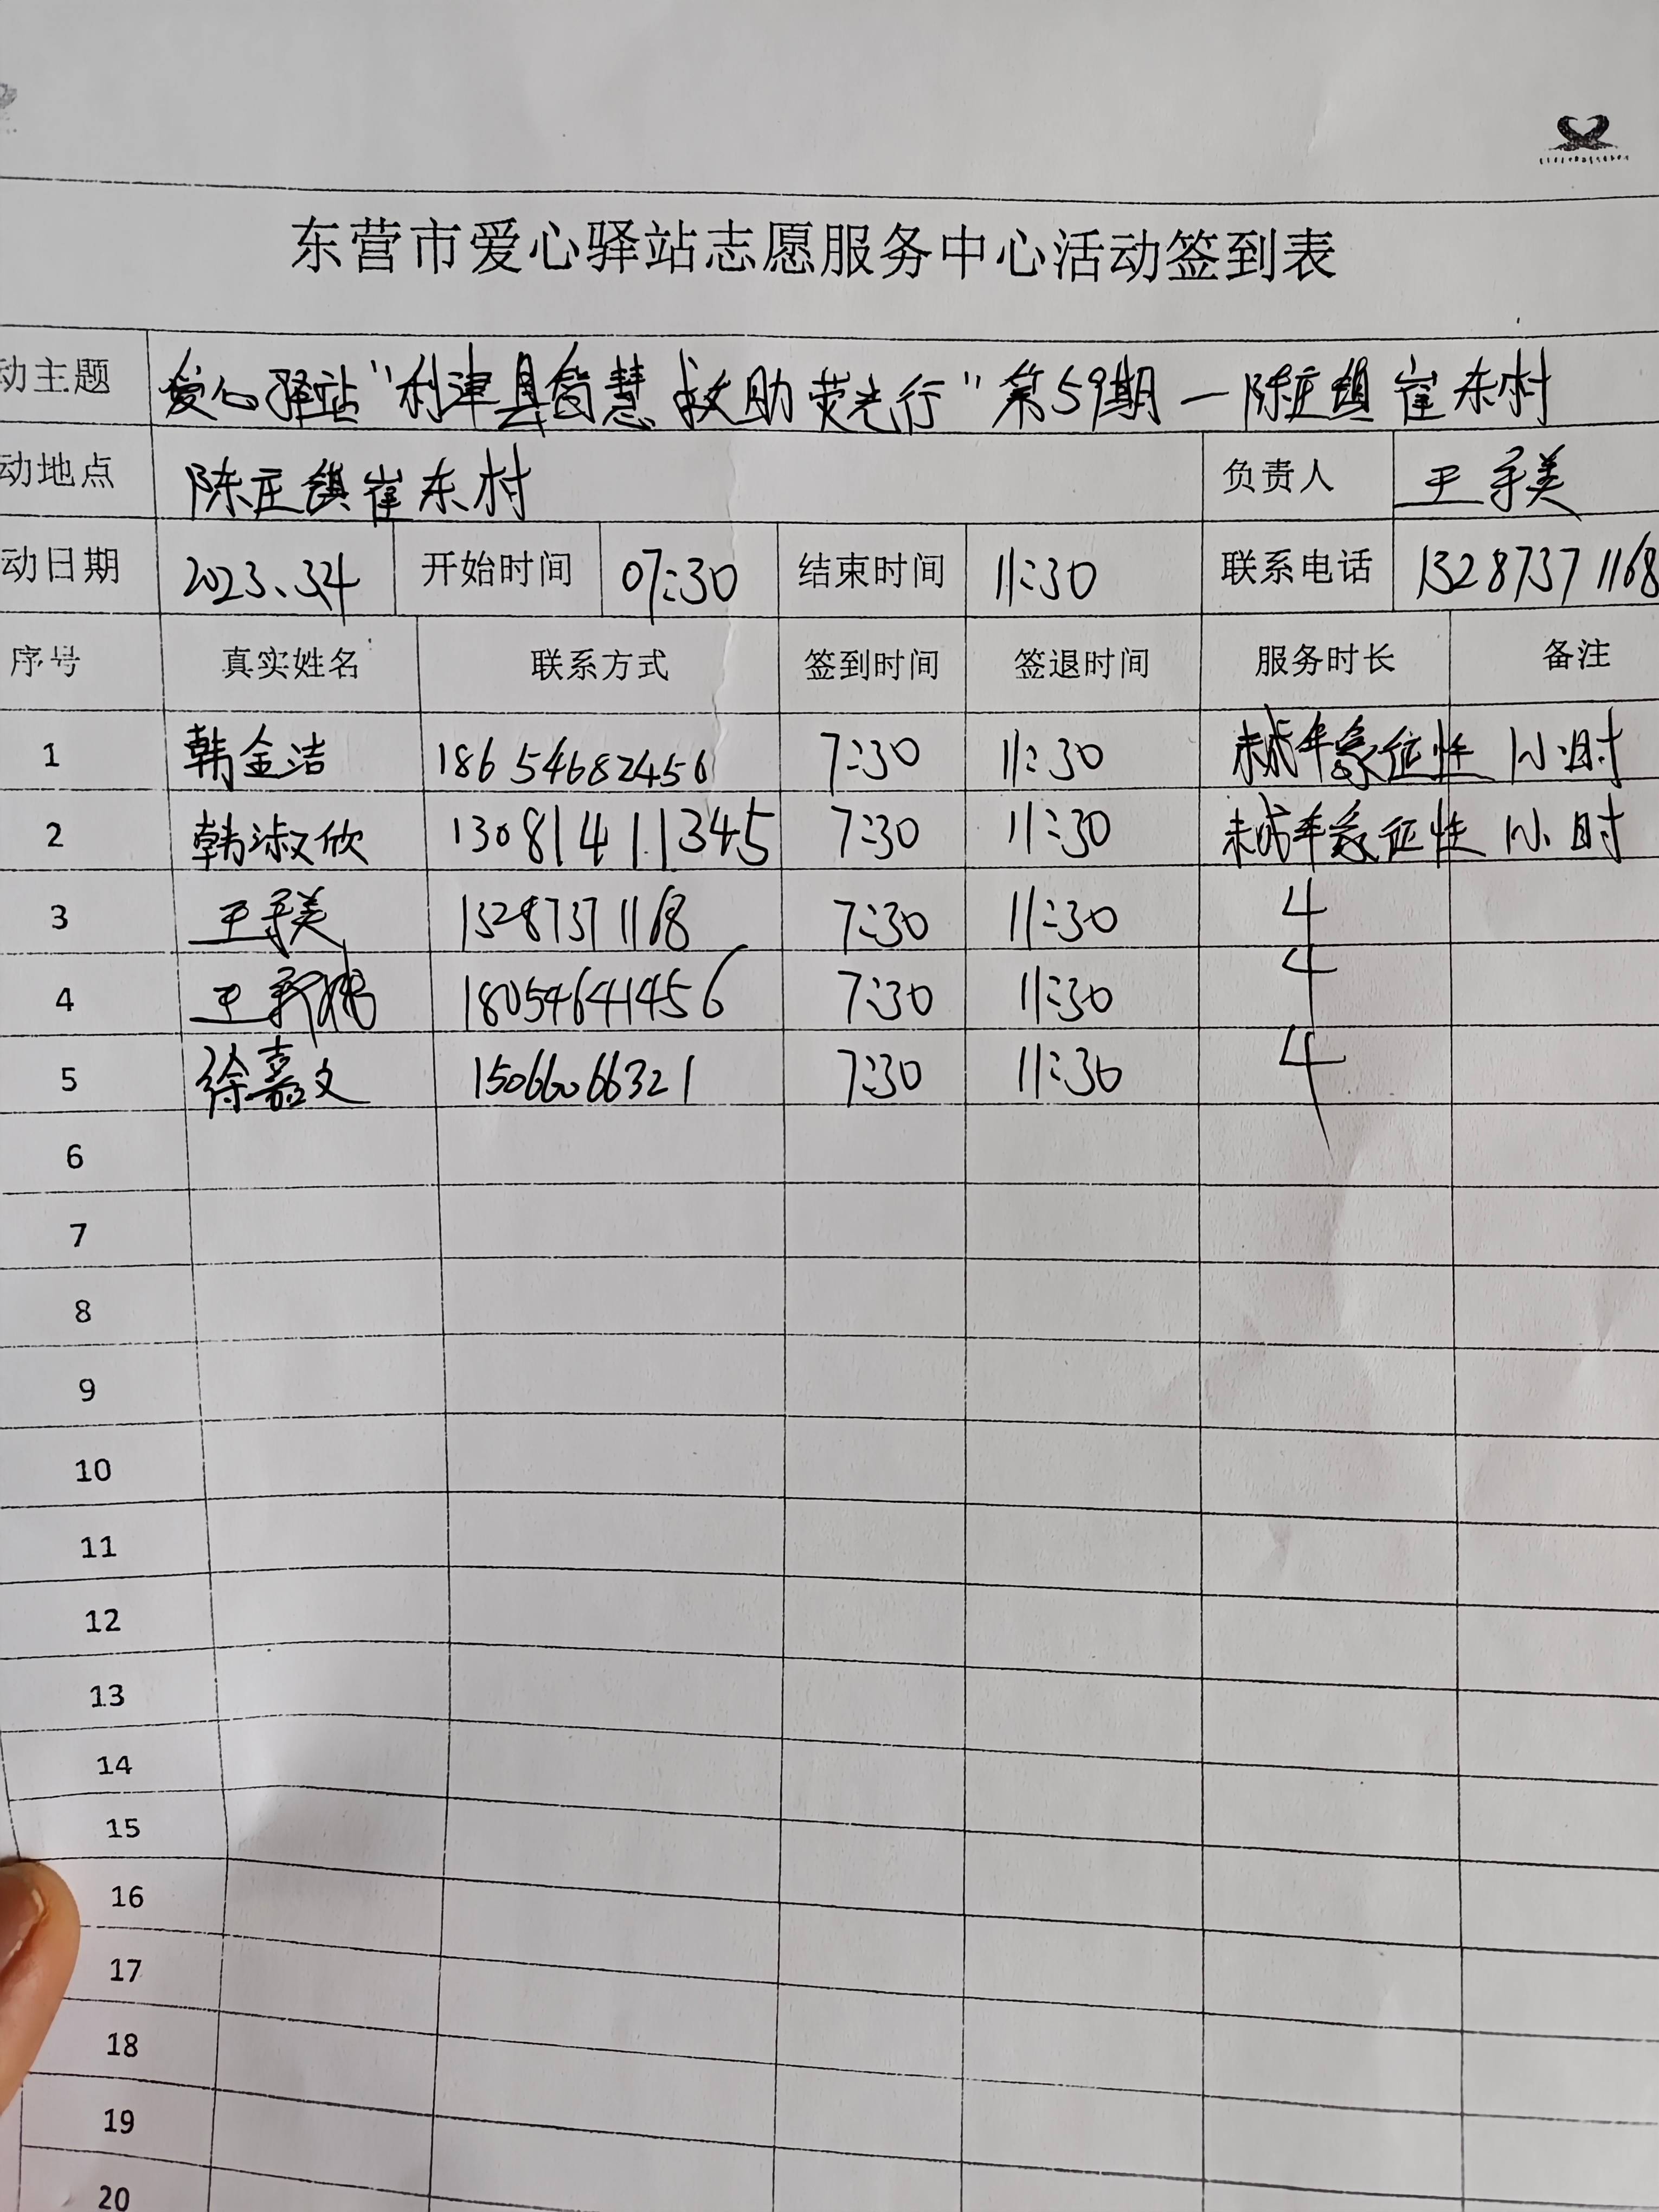 东营市爱心驿站志愿服务中心活动签到表
动主题 爱心驿站“利津县智慧救助荧光行”第59期—陈庄镇崔东村
动地点 陈庄镇崔东村 负责人 王美
动日期 2023.3.4 开始时间 07:30 结束时间 11:30 联系电话 13287371168
序号 真实姓名 联系方式 签到时间 签退时间 服务时长 备注
1 韩金洁 18654682456 7:30 11:30 未成年象征性 1小时
2 韩淑欣 13081411345 7:30 11:30 未成年象征性 1小时
3 王美 13287371168 7:30 11:30 4
4 王 18054641456 7:30 11:30 4
5 徐嘉文 15066066321 7:30 11:30 4
6
7
8
9
10
11
12
13
14
15
16
17
18
19
20